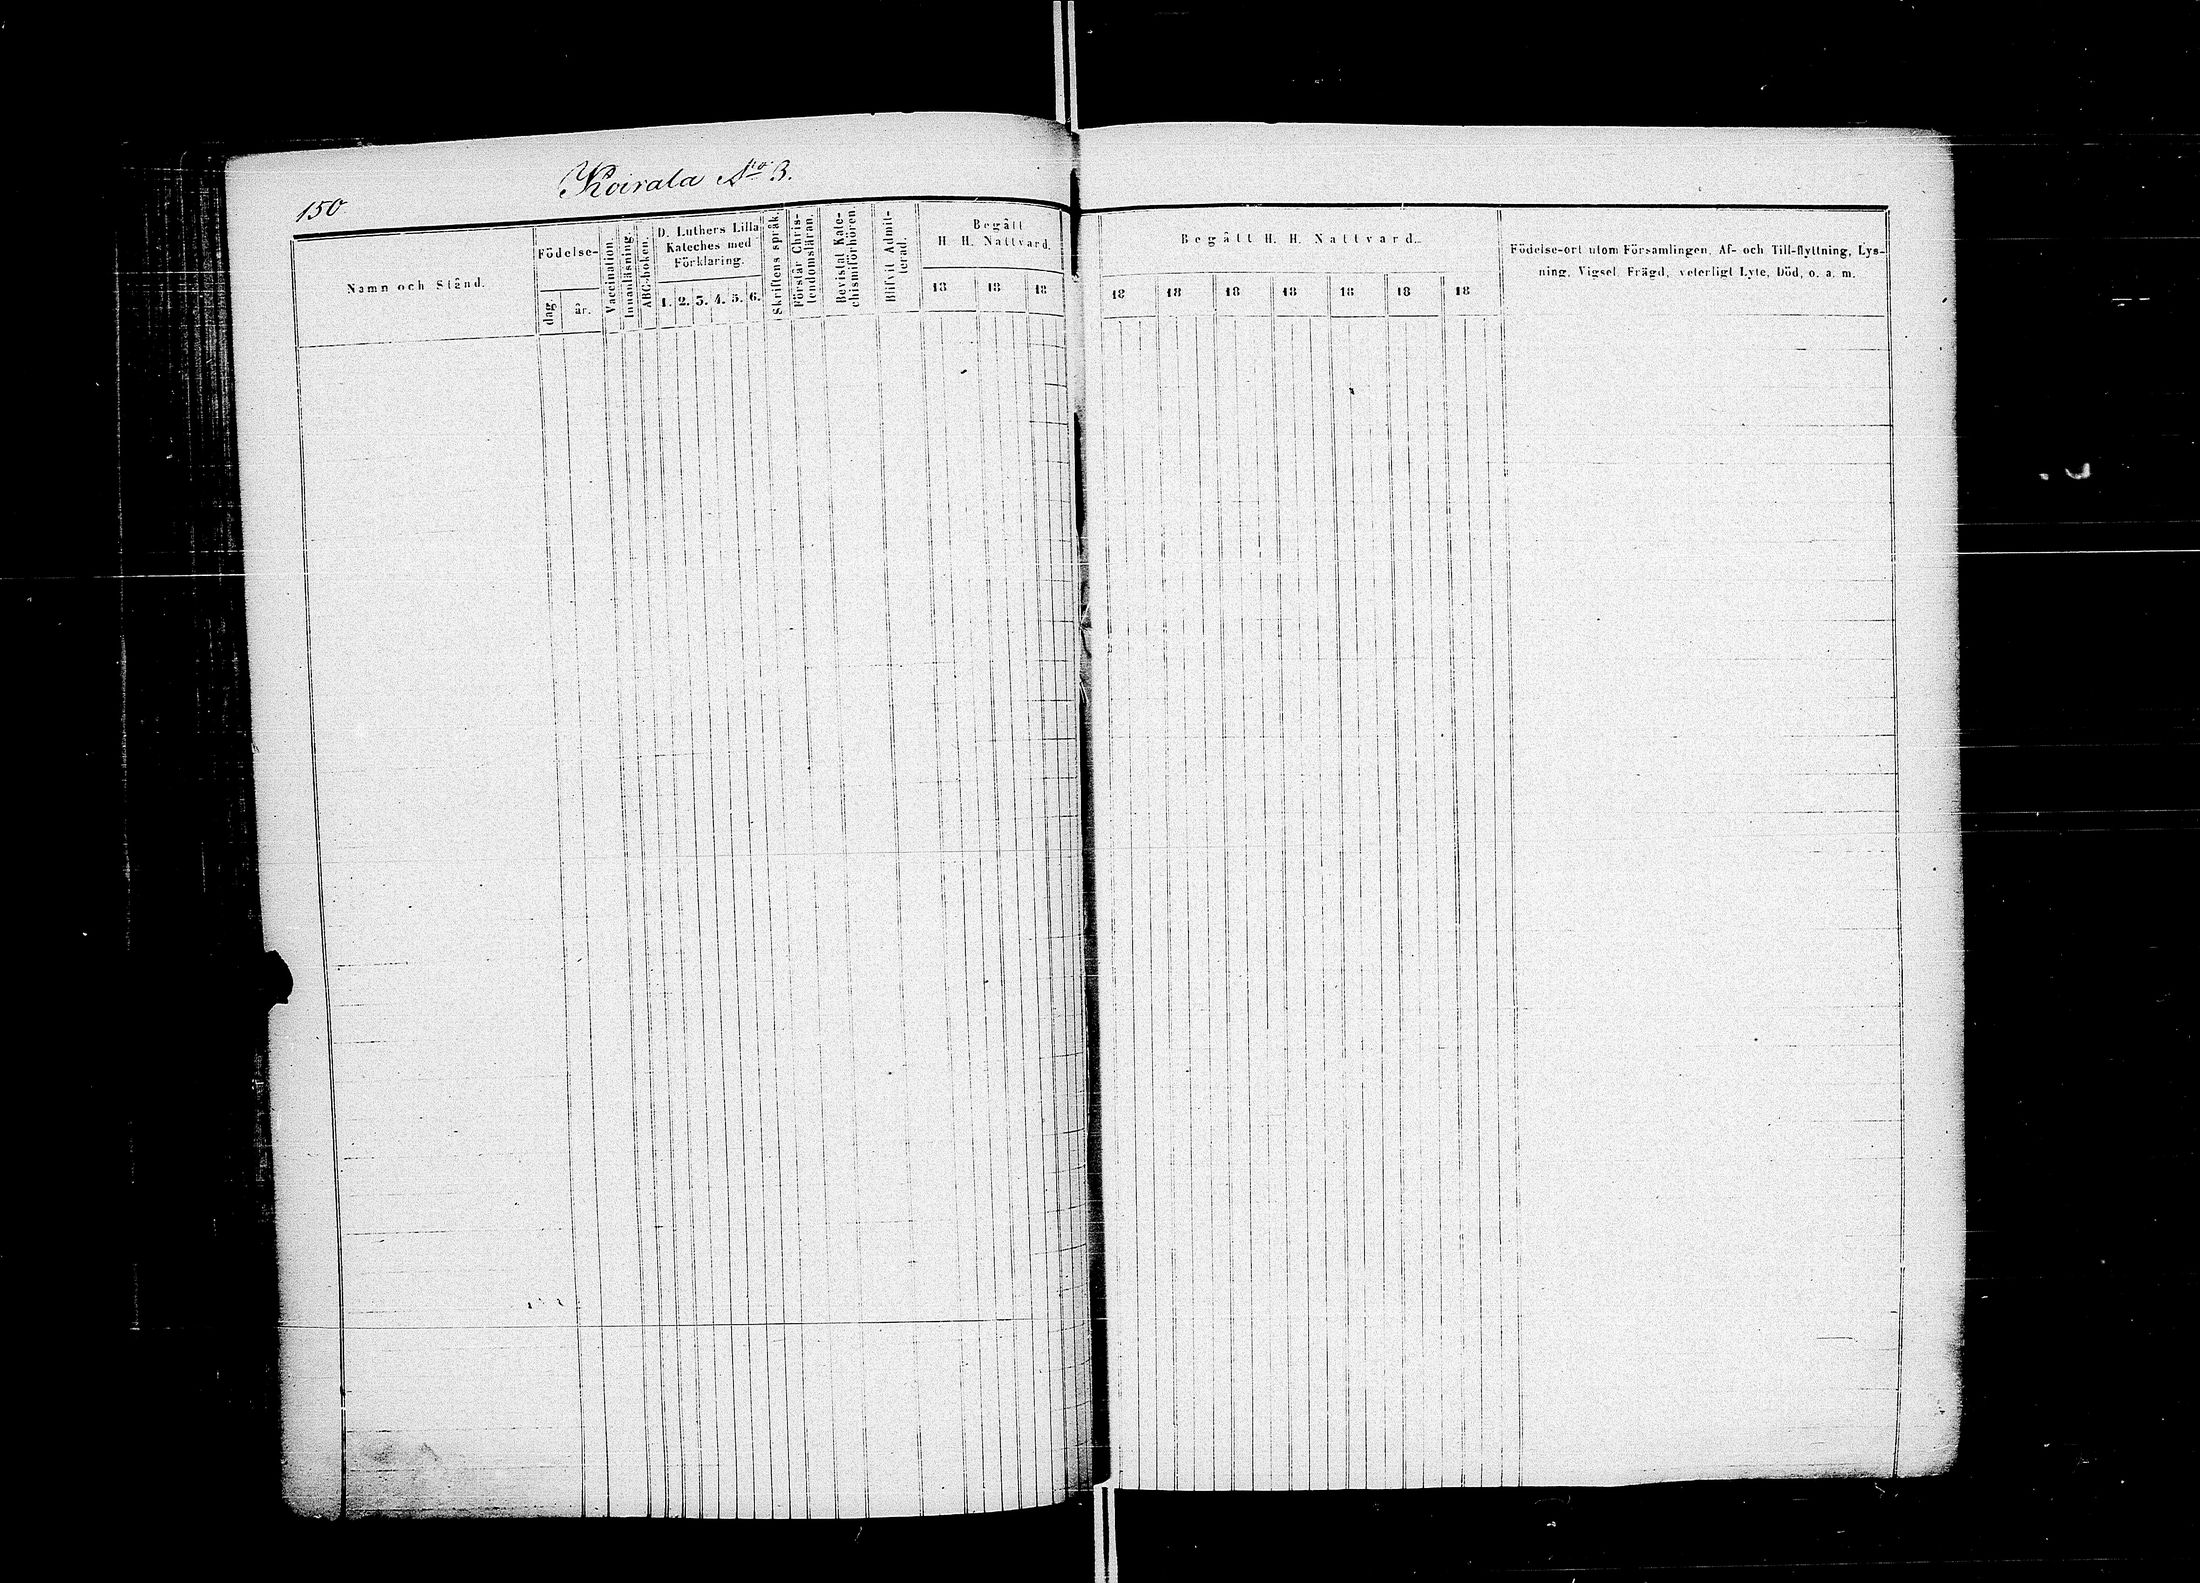 Koirala No 3.
150
Namn och Stånd.
Födelse-
dag.
år.
Vaccination.
Innanläsning.
ABC-boken.
D. Luthers Lilla
Kateches med
Förklaring.
1. 2. 3. 4. 5. 6.
Skriftens språk.
Förstår Chris-
tendomsläran.
Bevistat Kate-
chismiförhören.
Blifvit Admit-
terad.
Begått
H. H. Nattvard.
18 18 18
Begått H. H. Nattvard.
18 18 18 18 18 18 18
Födelse-ort utom Församlingen, Af- och Till-flyttning, Lys-
ning, Vigsel, Frägd, veterligt Lyte, Död, o. a. m.